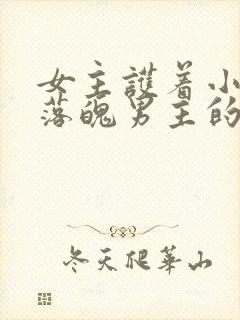 女主護着小
落魄男主的
冬天爬華山